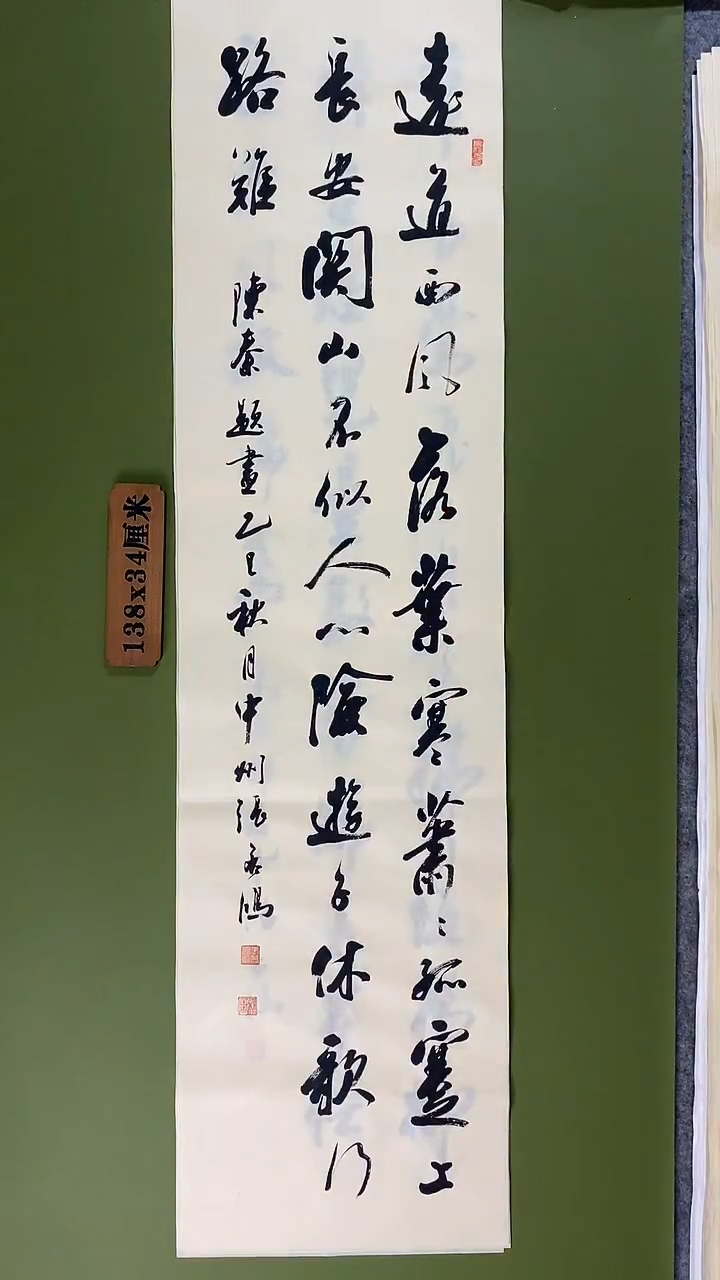 遠道西風落葉寒蕭〻孤蹇上
長安關山不似人心險遊子休歌行
路難 陳 題畫乙巳秋月中州張 鴻
138x34厘米